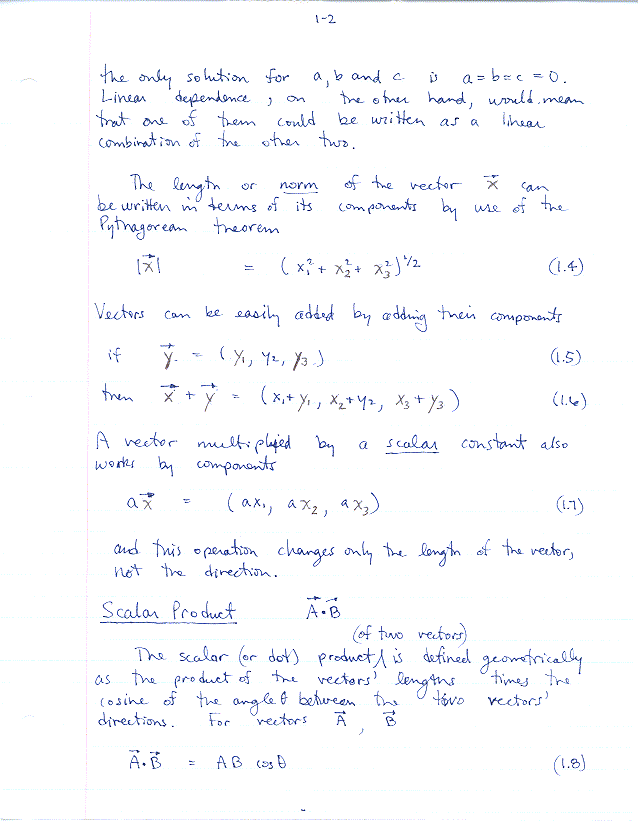 1-2
the only solution for a, b and c is a = b = c = 0.
Linear dependence, on the other hand, would mean
that one of them could be written as a linear
combination of the other two.
The length or norm of the vector x⃗ can
be written in terms of its components by use of the
Pythagorean theorem
|x⃗| = (x₁² + x₂² + x₃²)^1/2 (1.4)
Vectors can be easily added by adding their components
if y⃗ = (y₁, y₂, y₃) (1.5)
then x⃗ + y⃗ = (x₁+y₁, x₂+y₂, x₃+y₃) (1.6)
A vector multiplied by a scalar constant also
works by components
a x⃗ = (ax₁, ax₂, ax₃) (1.7)
and this operation changes only the length of the vector,
not the direction.
Scalar Product A⃗·B⃗
(of two vectors)
The scalar (or dot) product is defined geometrically
as the product of the vectors' lengths times the
cosine of the angle θ between the two vectors'
directions. For vectors A⃗, B⃗
A⃗·B⃗ = AB cos θ (1.8)